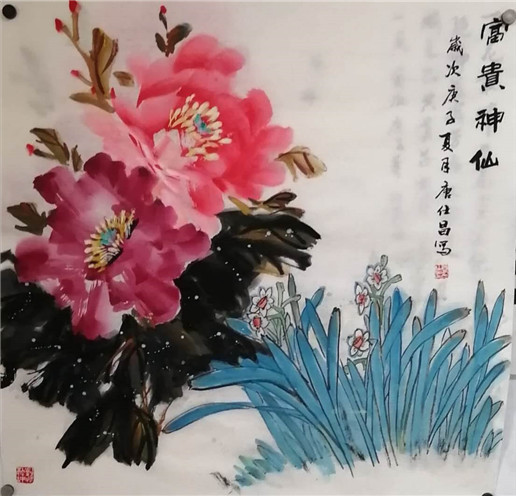 富貴神仙
歲次庚子夏月唐仕昌寫